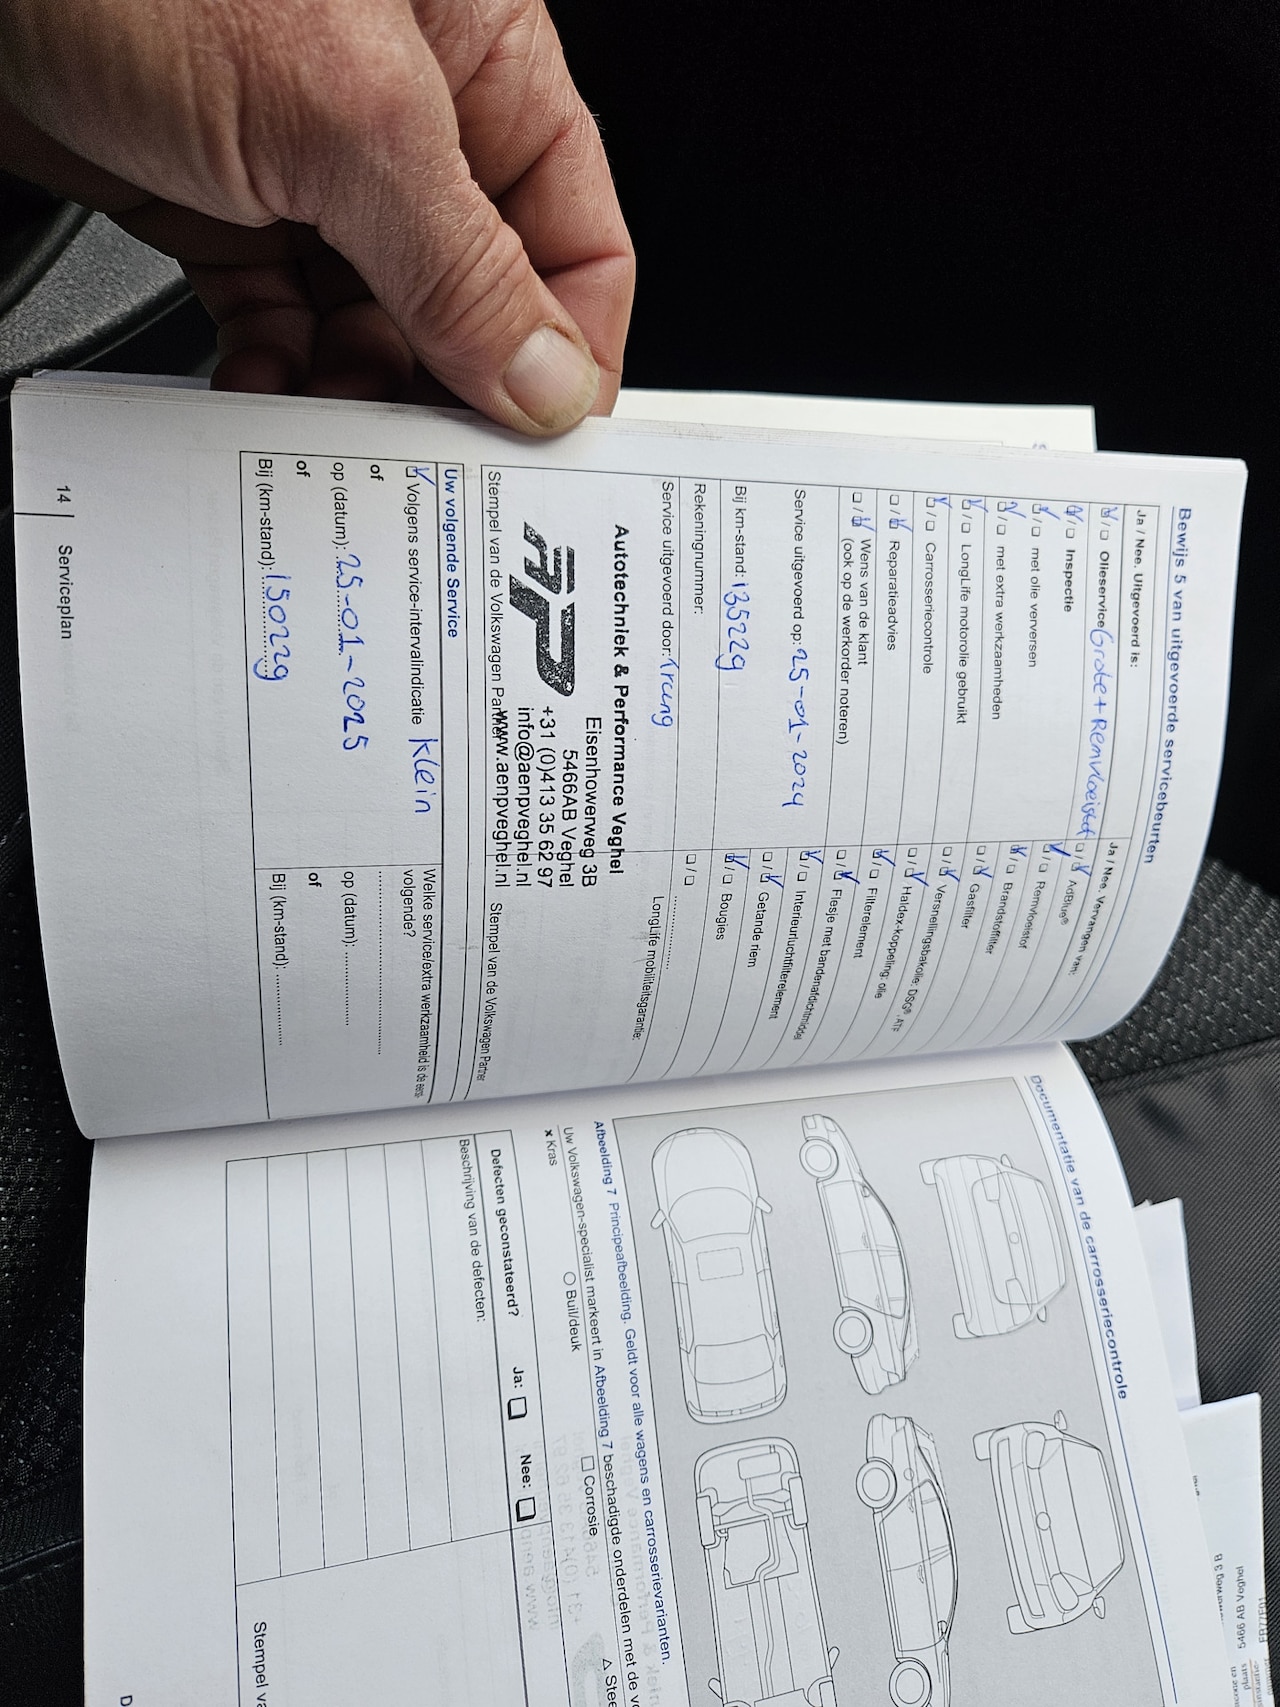 Bewijs 5 van uitgevoerde servicebeurten
Ja / Nee. Uitgevoerd is:
☑ / ☐ Olieservice Grote + Remvloeistof
☑ / ☐ Inspectie
☑ / ☐ met olie verversen
☑ / ☐ met extra werkzaamheden
☑ / ☐ LongLife motorolie gebruikt
☑ / ☐ Carrosseriecontrole
☐ / ☑ Reparatieadvies
☐ / ☑ Wens van de klant
(ook op de werkorder noteren)
Service uitgevoerd op: 25-01-2024
Bij km-stand: 135229
Rekeningnummer:
Service uitgevoerd door:
Autotechniek & Performance Veghel
Eisenhowerweg 3B
5466AB Veghel
+31 (0)413 35 62 97
info@aenpveghel.nl
www.aenpveghel.nl
Stempel van de Volkswagen Partner
Ja / Nee. Vervangen van:
☐ / ☑ AdBlue®
☑ / ☐ Remvloeistof
☑ / ☐ Brandstoffilter
☐ / ☑ Gasfilter
☐ / ☑ Versnellingsbakolie: DSG®, ATF
☐ / ☑ Haldex-koppeling: olie
☑ / ☐ Filterelement
☐ / ☑ Flesje met bandenafdichtmiddel
☑ / ☐ Interieurluchtfilterelement
☐ / ☑ Getande riem
☑ / ☐ Bougies
☐ / ☐
LongLife mobiliteitsgarantie:
Stempel van de Volkswagen Partner
Uw volgende Service
☑ Volgens service-intervalindicatie Klein
of
op (datum): 25-01-2025
of
Bij (km-stand): 150229
Welke service/extra werkzaamheid is de eerst-
volgende?
op (datum):
of
Bij (km-stand):
14 | Serviceplan
Documentatie van de carrosseriecontrole
Afbeelding 7 Principeafbeelding. Geldt voor alle wagens en carrosserievarianten.
Uw Volkswagen-specialist markeert in Afbeelding 7 beschadigde onderdelen met de
× Kras
○ Buil/deuk
☐ Corrosie
Defecten geconstateerd? Ja: ☐ Nee: ☐
Beschrijving van de defecten:
5466 AB Veghel
plaats